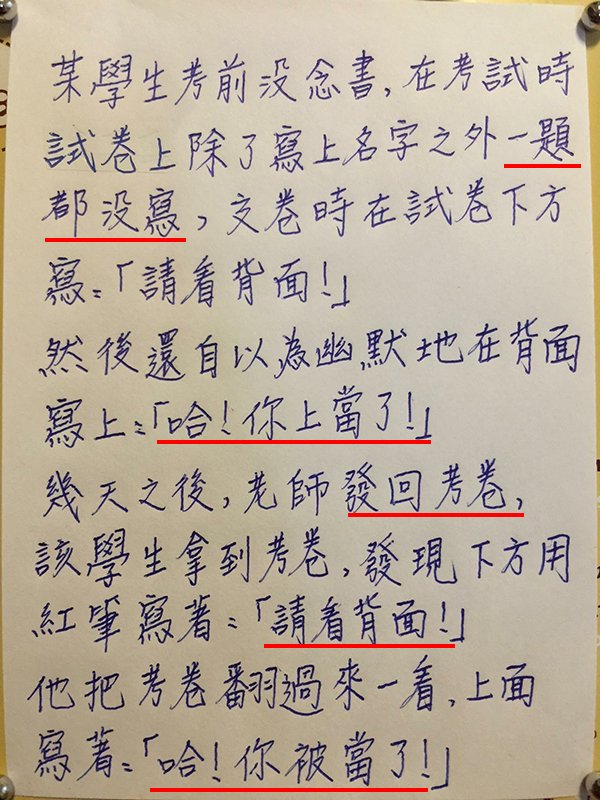 某學生考前没念書,在考試時
試卷上除了寫上名字之外一題
都没寫,交卷時在試卷下方
寫:「請看背面!」
然後還自以為幽默地在背面
寫上:「哈!你上當了!」
幾天之後,老師發回考卷,
該學生拿到考卷,發現下方用
紅筆寫著:「請看背面!」
他把考卷翻過來一看,上面
寫著:「哈!你被當了!」